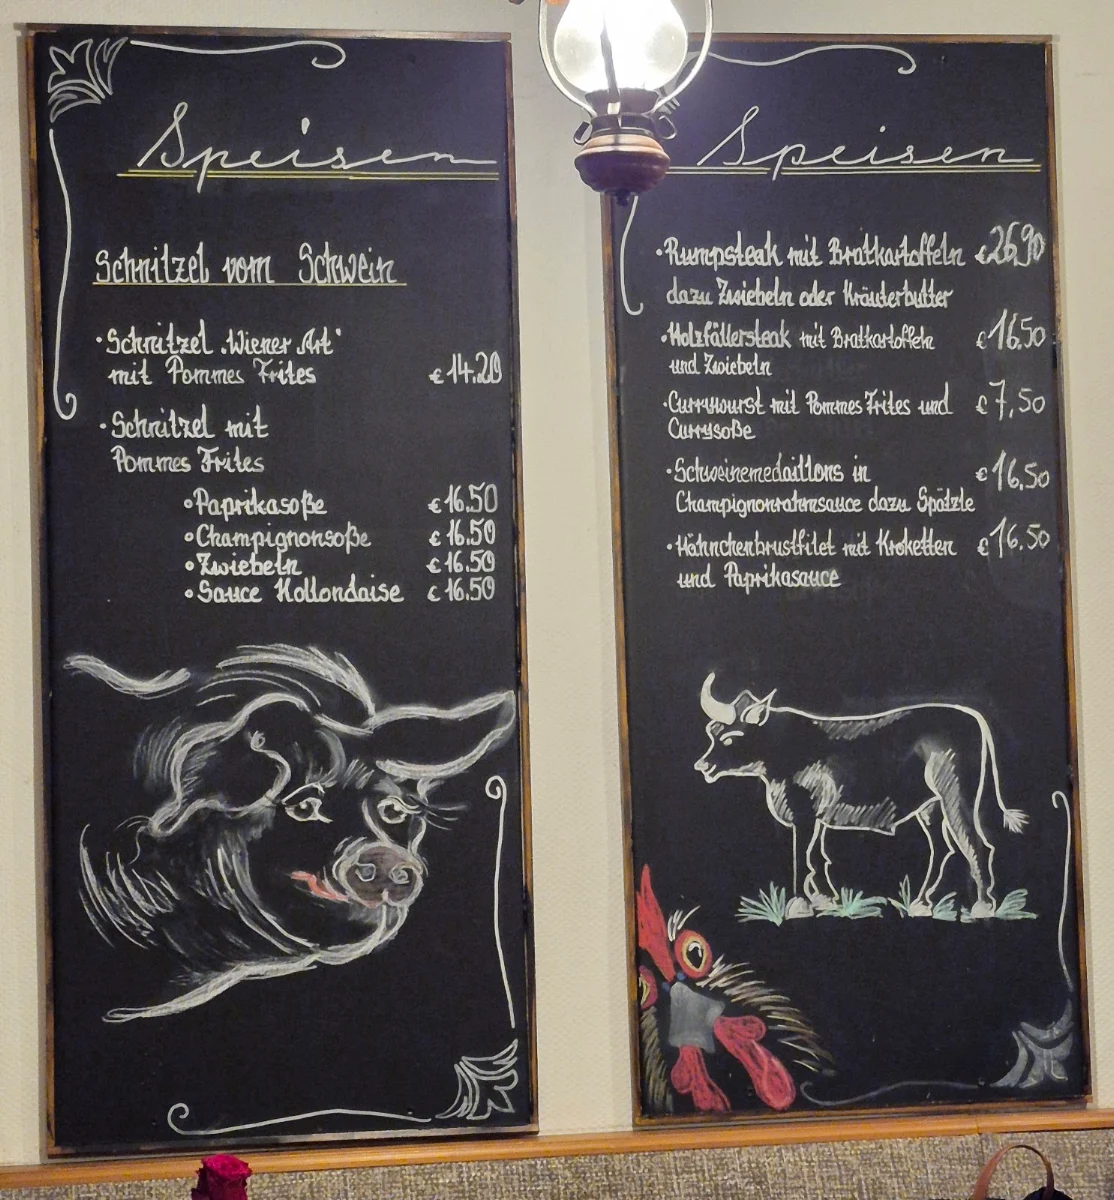 Speisen
Schnitzel vom Schwein
· Schnitzel „Wiener Art“
mit Pommes Frites € 14.20
· Schnitzel mit
Pommes Frites
° Paprikasoße € 16.50
° Champignonsoße € 16.50
° Zwiebeln € 16.50
° Sauce Hollondaise € 16.50
Speisen
· Rumpsteak mit Bratkartoffeln € 26,90
dazu Zwiebeln oder Kräuterbutter
· Holzfällersteak mit Bratkartoffeln € 16.50
und Zwiebeln
· Currywurst mit Pommes Frites und € 7,50
Currysoße
· Schweinemedaillons in € 16,50
Champignonrahmsauce dazu Spätzle
· Hähnchenbrustfilet mit Kroketten € 16.50
und Paprikasauce